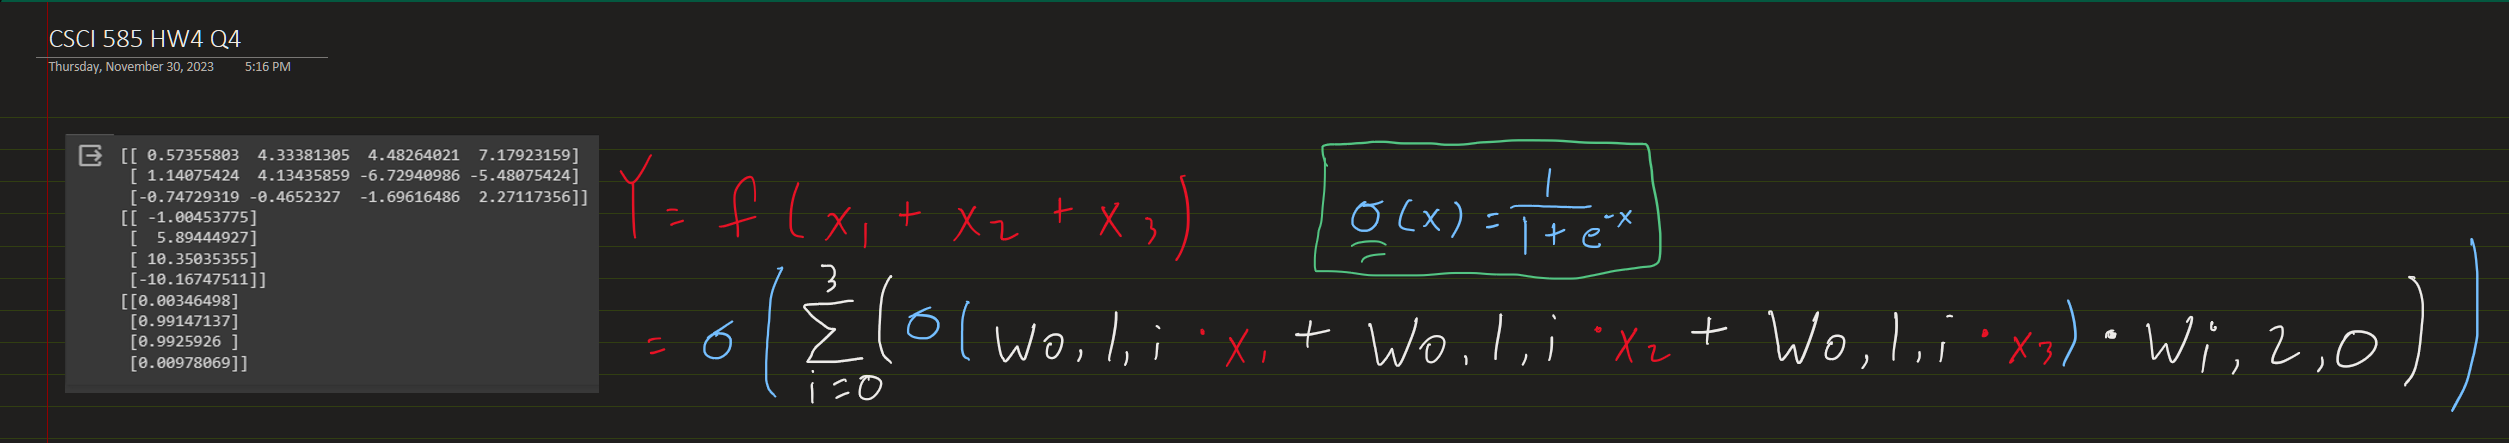 CSCI 585 HW4 Q4
Thursday, November 30, 2023 5:16 PM
[[ 0.57355803 4.33381305 4.48264021 7.17923159]
[ 1.14075424 4.13435859 -6.72940986 -5.48075424]
[-0.74729319 -0.4652327 -1.69616486 2.27117356]]
[[ -1.00453775]
[ 5.89444927]
[ 10.35035355]
[-10.16747511]]
[[0.00346498]
[0.99147137]
[0.9925926 ]
[0.00978069]]
Y = f(x₁ + x₂ + x₃)
σ(x) = 1/(1 + e^-x)
= σ(∑_{i=0}^{3}(σ(W0,1,i · x₁ + W0,1,i · x₂ + W0,1,i · x₃) · Wi,2,0))